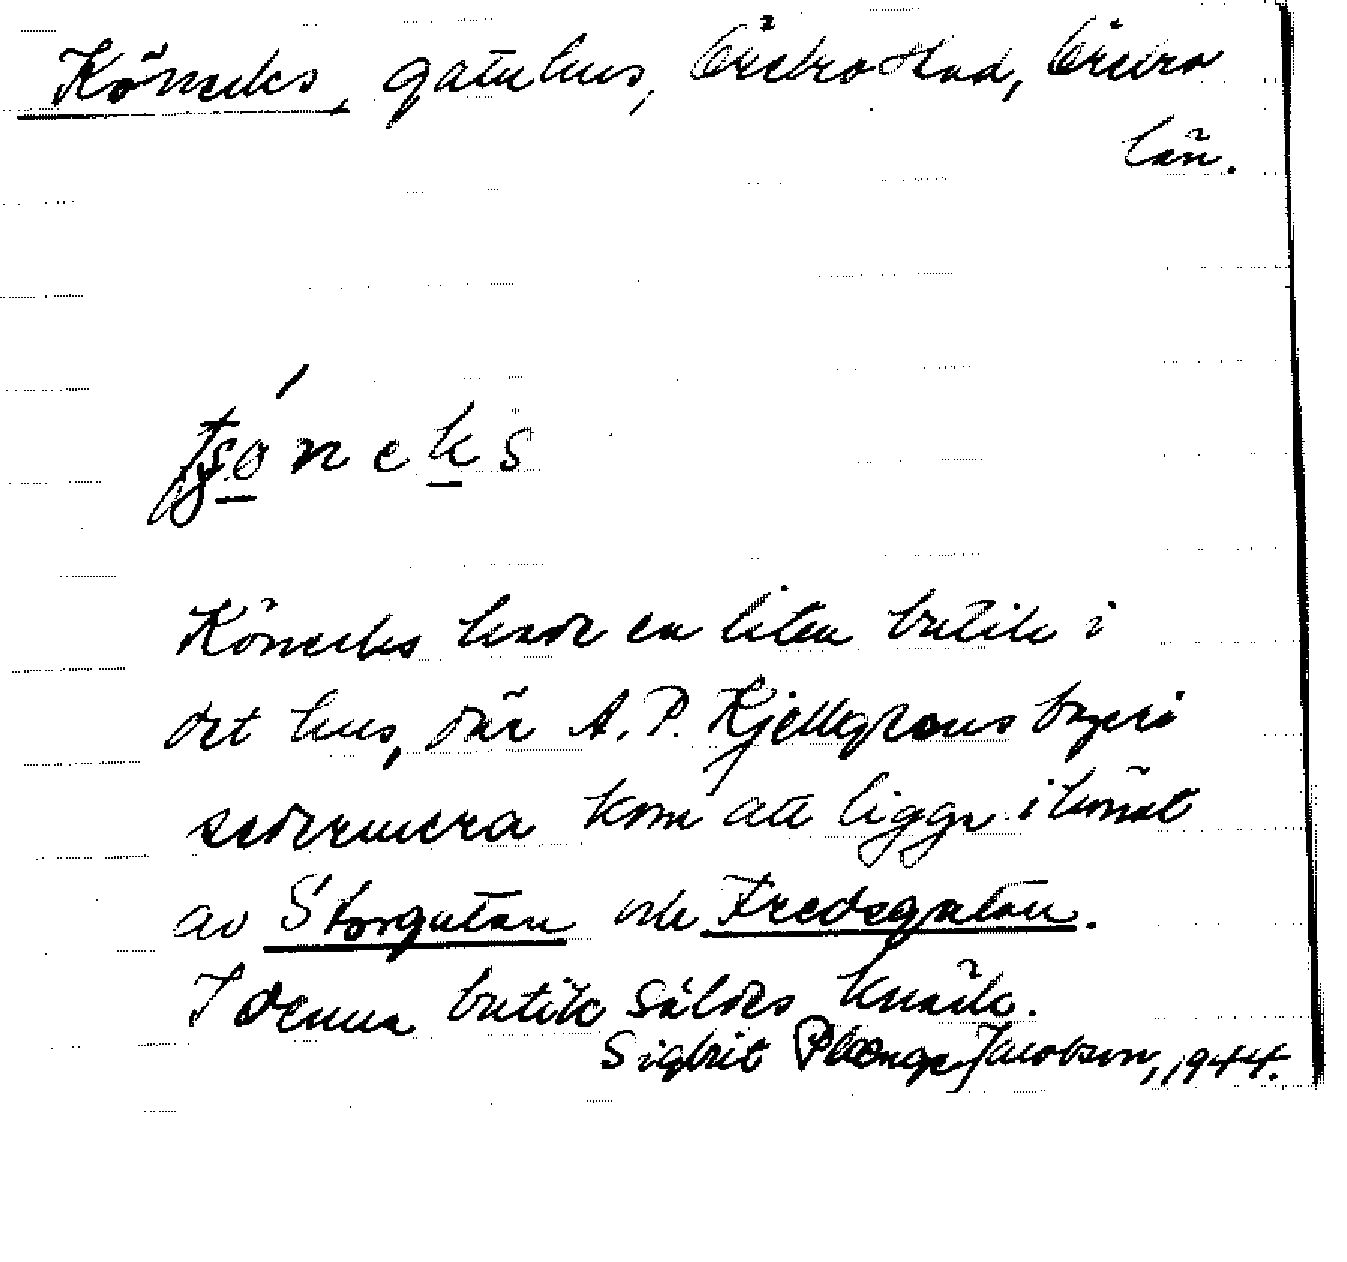 Könecks, gatuhus, Örebro stad, Örebro
län.
Könecks hade en liten butik i
det hus, där A. P. Kjellgrens bageri
sedermera kom att ligga i hörnet
av Storgatan och Fredsgatan.
I denna butik såldes knäck.
Sigbrit Plænge Jacobson, 1944.